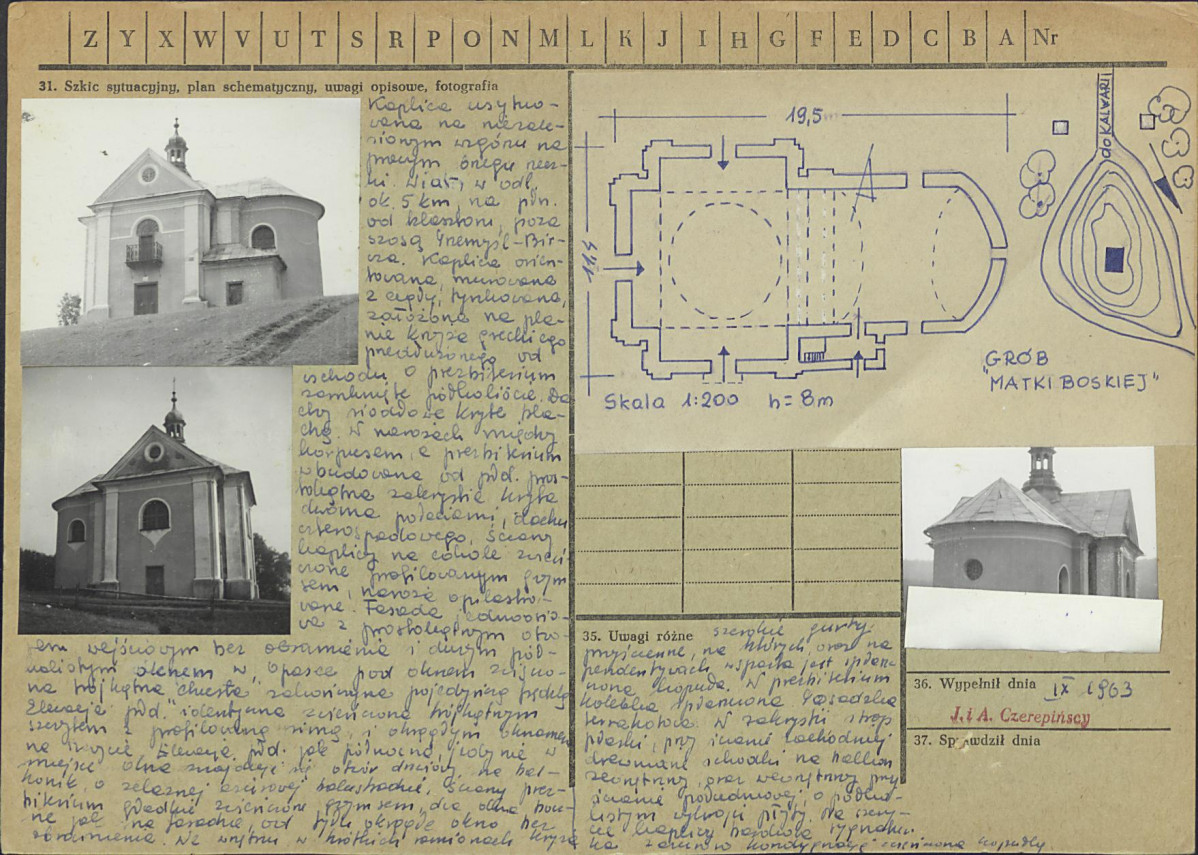 Z Y X W V U T S R P O N M L K J I H G F E D C B A Nr
31. Szkic sytuacyjny, plan schematyczny, uwagi opisowe, fotografia
Kaplica usytuo-
wana na niezale-
sionym wzgórzu na
prawym brzegu rzecz-
ki Wiar, w odl.
ok. 5 km, na płn.
od klasztoru, poza
szosą Przemyśl-Bir-
cza. Kaplica orien-
towana, murowana
z cegły, tynkowana,
założona na pla-
nie krzyża greckiego
przedłużonego od
wschodu o prezbiterium
zamknięte półkoliście. Da-
chy siodłowe kryte bla-
chą. W narożach między
korpusem, a prezbiterium
wbudowana od płd. pros-
tokątna zakrystia kryta
dwoma połaciami dachu
czterospadowego. Ściany
kaplicy na cokole zwień-
czone profilowanym gzym-
sem, naroża opilastro-
wane. Fasada jednoosio-
wa z prostokątnym otwo-
rem wejściowym bez obramienia i dużym pół-
kolistym oknem w opasce pod oknem
trójkątna "chusta" zakończona pojedynczą
Elewacja płd. identyczna zwieńczona trójkątnym
szczytem z profilowaną ramą, i okrągłym oknem
na Elewacja płd. jak północna, jedynie w
miejscu okna znajduje się otwór drzwiowy na bal-
konik, o żelaznej balustradzie. Ściany prez-
biterium gładkie zwieńczone gzymsem, dwa okna bocz-
ne jak na fasadzie, od tyłu okrągłe okno bez
obramienia. We wnętrzu w krótkich ramionach krzyża
19,5
11,4
Skala 1:200 h= 8m
do KALWARII
GRÓB
"MATKI BOSKIEJ"
35. Uwagi różne szerokie gurty
przyścienne, na których oraz na
pendentywach wsparta jest spłasz-
czona kopuła. W prezbiterium
kolebka spłaszczona. Posadzka
terrakotowa. W zakrystii strop
płaski, przy ścianie zachodniej
drewniane schodki na balkon
zewnętrzny, oraz wewnętrzny przy
ścianie południowej, o półko-
listym wykroju płyty. Na szczy-
cie kaplicy
zwieńczona kopułką
36. Wypełnił dnia IX 1963
J. i A. Czerepińscy
37. Sprawdził dnia